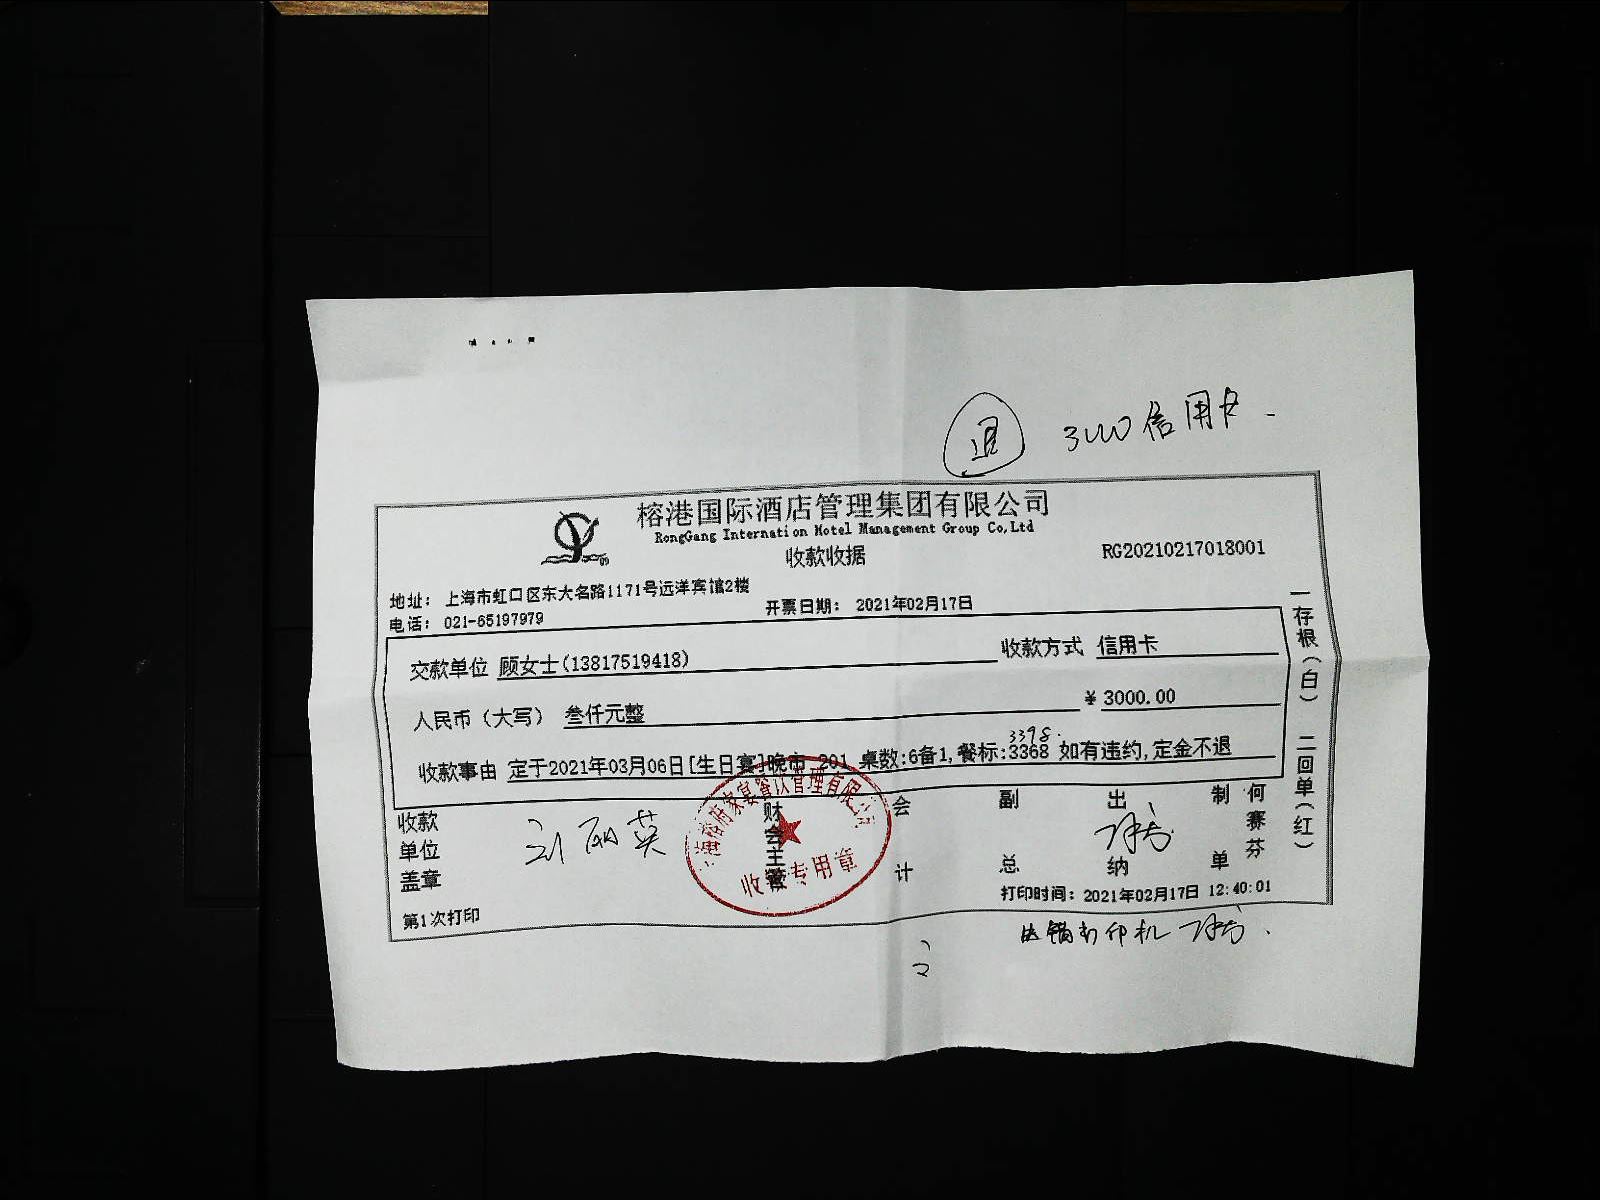 退 3000信用卡
榕港国际酒店管理集团有限公司
RongGang Internation Hotel Management Group Co,Ltd
收款收据
RG20210217018001
地址： 上海市虹口区东大名路1171号远洋宾馆2楼
电话： 021-65197979
开票日期： 2021年02月17日
交款单位 顾女士(13817519418) 收款方式 信用卡
人民币（大写） 叁仟元整 ¥ 3000.00
3398.
收款事由 定于2021年03月06日[生日宴]晚市 201 桌数:6备1,餐标:3368 如有违约,定金不退
一存根（白） 二回单（红）
收款单位盖章
刘丽英
财会主管
会计
副总
出纳
制单
何赛芬
收款专用章
打印时间: 2021年02月17日 12:40:01
第1次打印